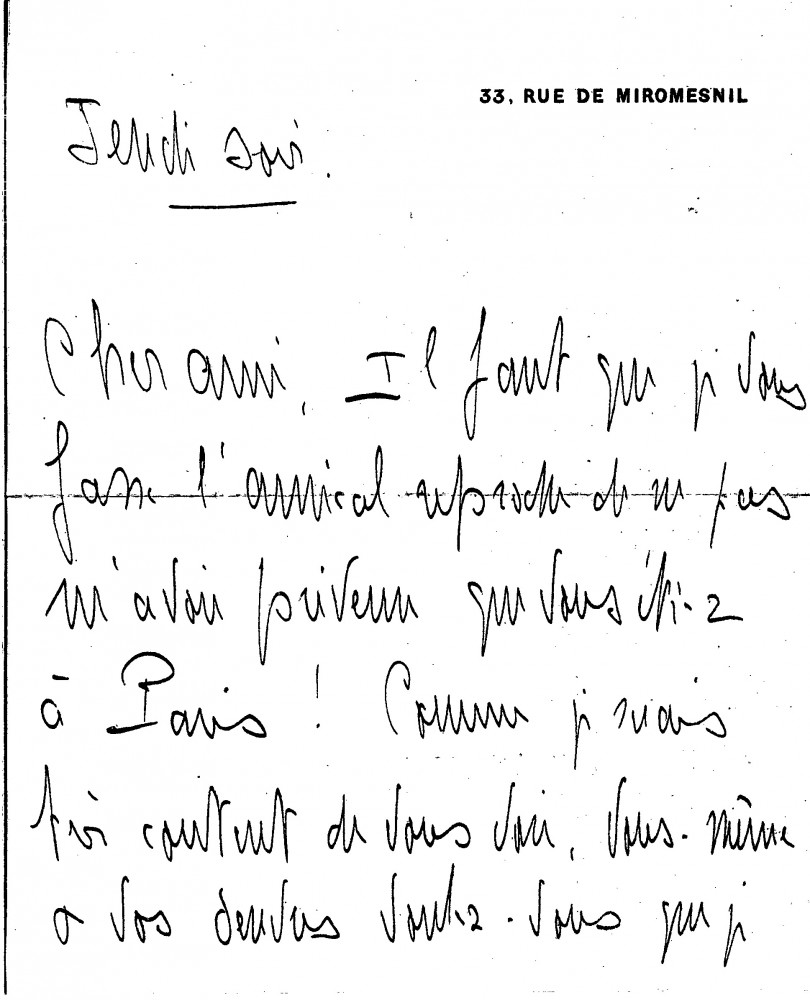 33, RUE DE MIROMESNIL
Jeudi soir.
Cher ami, Il faut que je vous
fasse l'amical reproche de ne pas
m'avoir prévenu que vous étiez
à Paris ! Comme je serais
très content de vous voir, vous-même
& vos voulez-vous que je